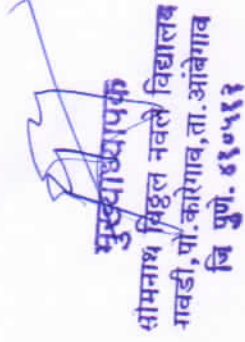 मुख्याध्यापक
सोमनाथ विठ्ठल नवले विद्यालय
गावडी, पो. कारेगाव, ता. आंबेगाव
जि पुणे. ४१०५१२